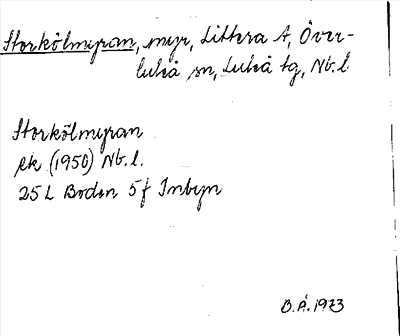 Storkölmyran, myr, Littera A, Över-
luleå sn, Luleå tg, Nb. l.
Storkölmyran
ek (1950) Nb. l.
25 L Boden 5 f Inbyn
B.Å. 1973